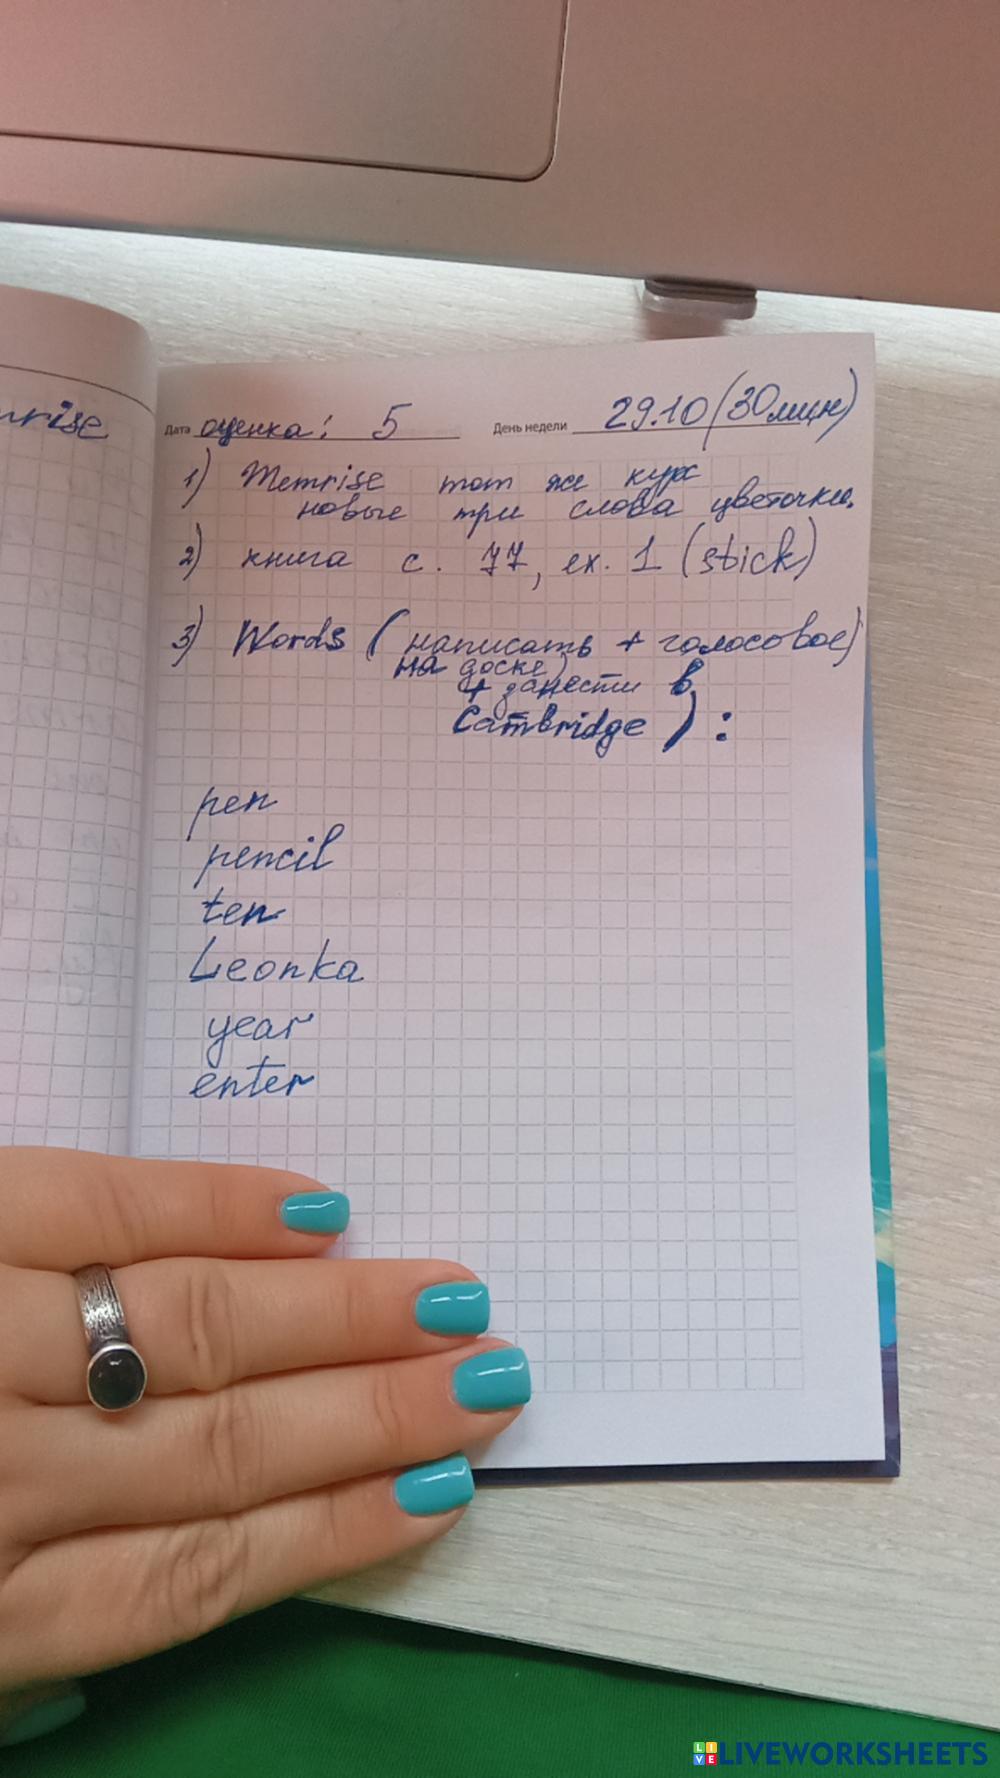 mrise
Дата оценка: 5 День недели 29.10 (30 мин)
1) Memrise тот же курс
новые три слова цветочки.
2) книга с. 77, ex. 1 (stick)
3) Words (написать + голосовое)
на доске)
+ занести в
Cambridge ) :
pen
pencil
ten
Leonka
year
enter
LIVEWORKSHEETS